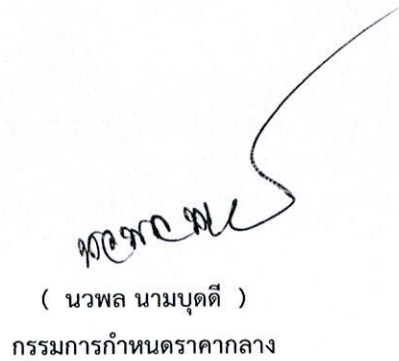 ( นวพล นามบุดดี )
กรรมการกำหนดราคากลาง